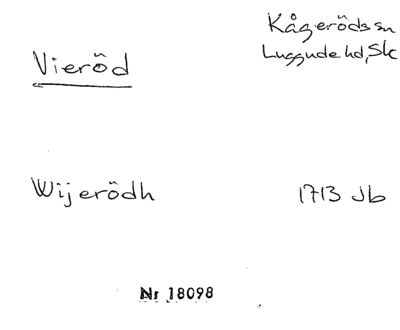 Vieröd
Kågeröds sn
Luggude hd, Sk
Wijerödh
1713 Jb
Nr 18098